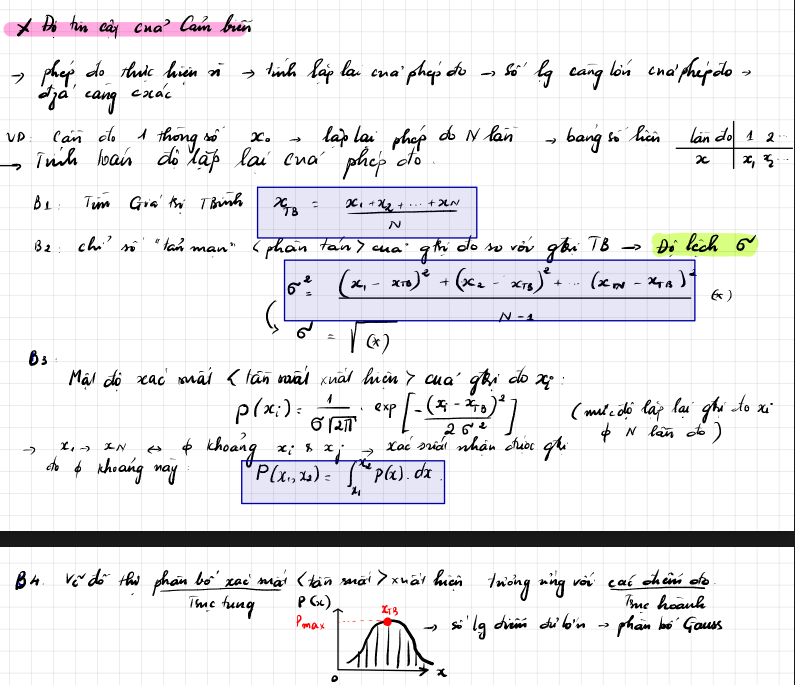 * Độ tin cậy của Cảm biến
→ phép đo thực hiện n → tính lặp lại của phép đo → số lg càng lớn của phép đo →
đgiá càng cxác
VD: Cần đo 1 thông số x₀ → lặp lại phép đo N lần → bảng số liệu
lần đo | 1 2 ...
x | x₁ x₂ ...
→ Tính toán độ lặp lại của phép đo.
B1: Tìm Giá trị TBình x_TB = (x₁ + x₂ + ... + x_N) / N
B2: chỉ số "tản mạn" <phân tán> của gtrị đo so với gtrị TB → Độ lệch σ
σ² = ((x₁ - x_TB)² + (x₂ - x_TB)² + ... (x_N - x_TB)²) / (N-1) (*)
↳ σ = √(*)
B3:
Mật độ xác suất <tần suất xuất hiện> của gtrị đo xᵢ:
p(xᵢ) = 1/(σ√2π) . exp[-(xᵢ - x_TB)² / 2σ²] (mức độ lặp lại gtrị đo xᵢ
φ N lần đo)
→ x₁ → x_N ↔ φ khoảng xᵢ & xⱼ → xác suất nhận được gtrị
đo φ khoảng này:
P(x₁, x₂) = ∫_{x₁}^{x₂} p(x). dx
B4. Vẽ đồ thị phân bố xác suất <tần suất> xuất hiện tương ứng với các điểm đo.
Trục tung
Trục hoành
P(x)
x_TB
Pmax
→ số lg điểm đủ lớn → phân bố Gauss
0
x